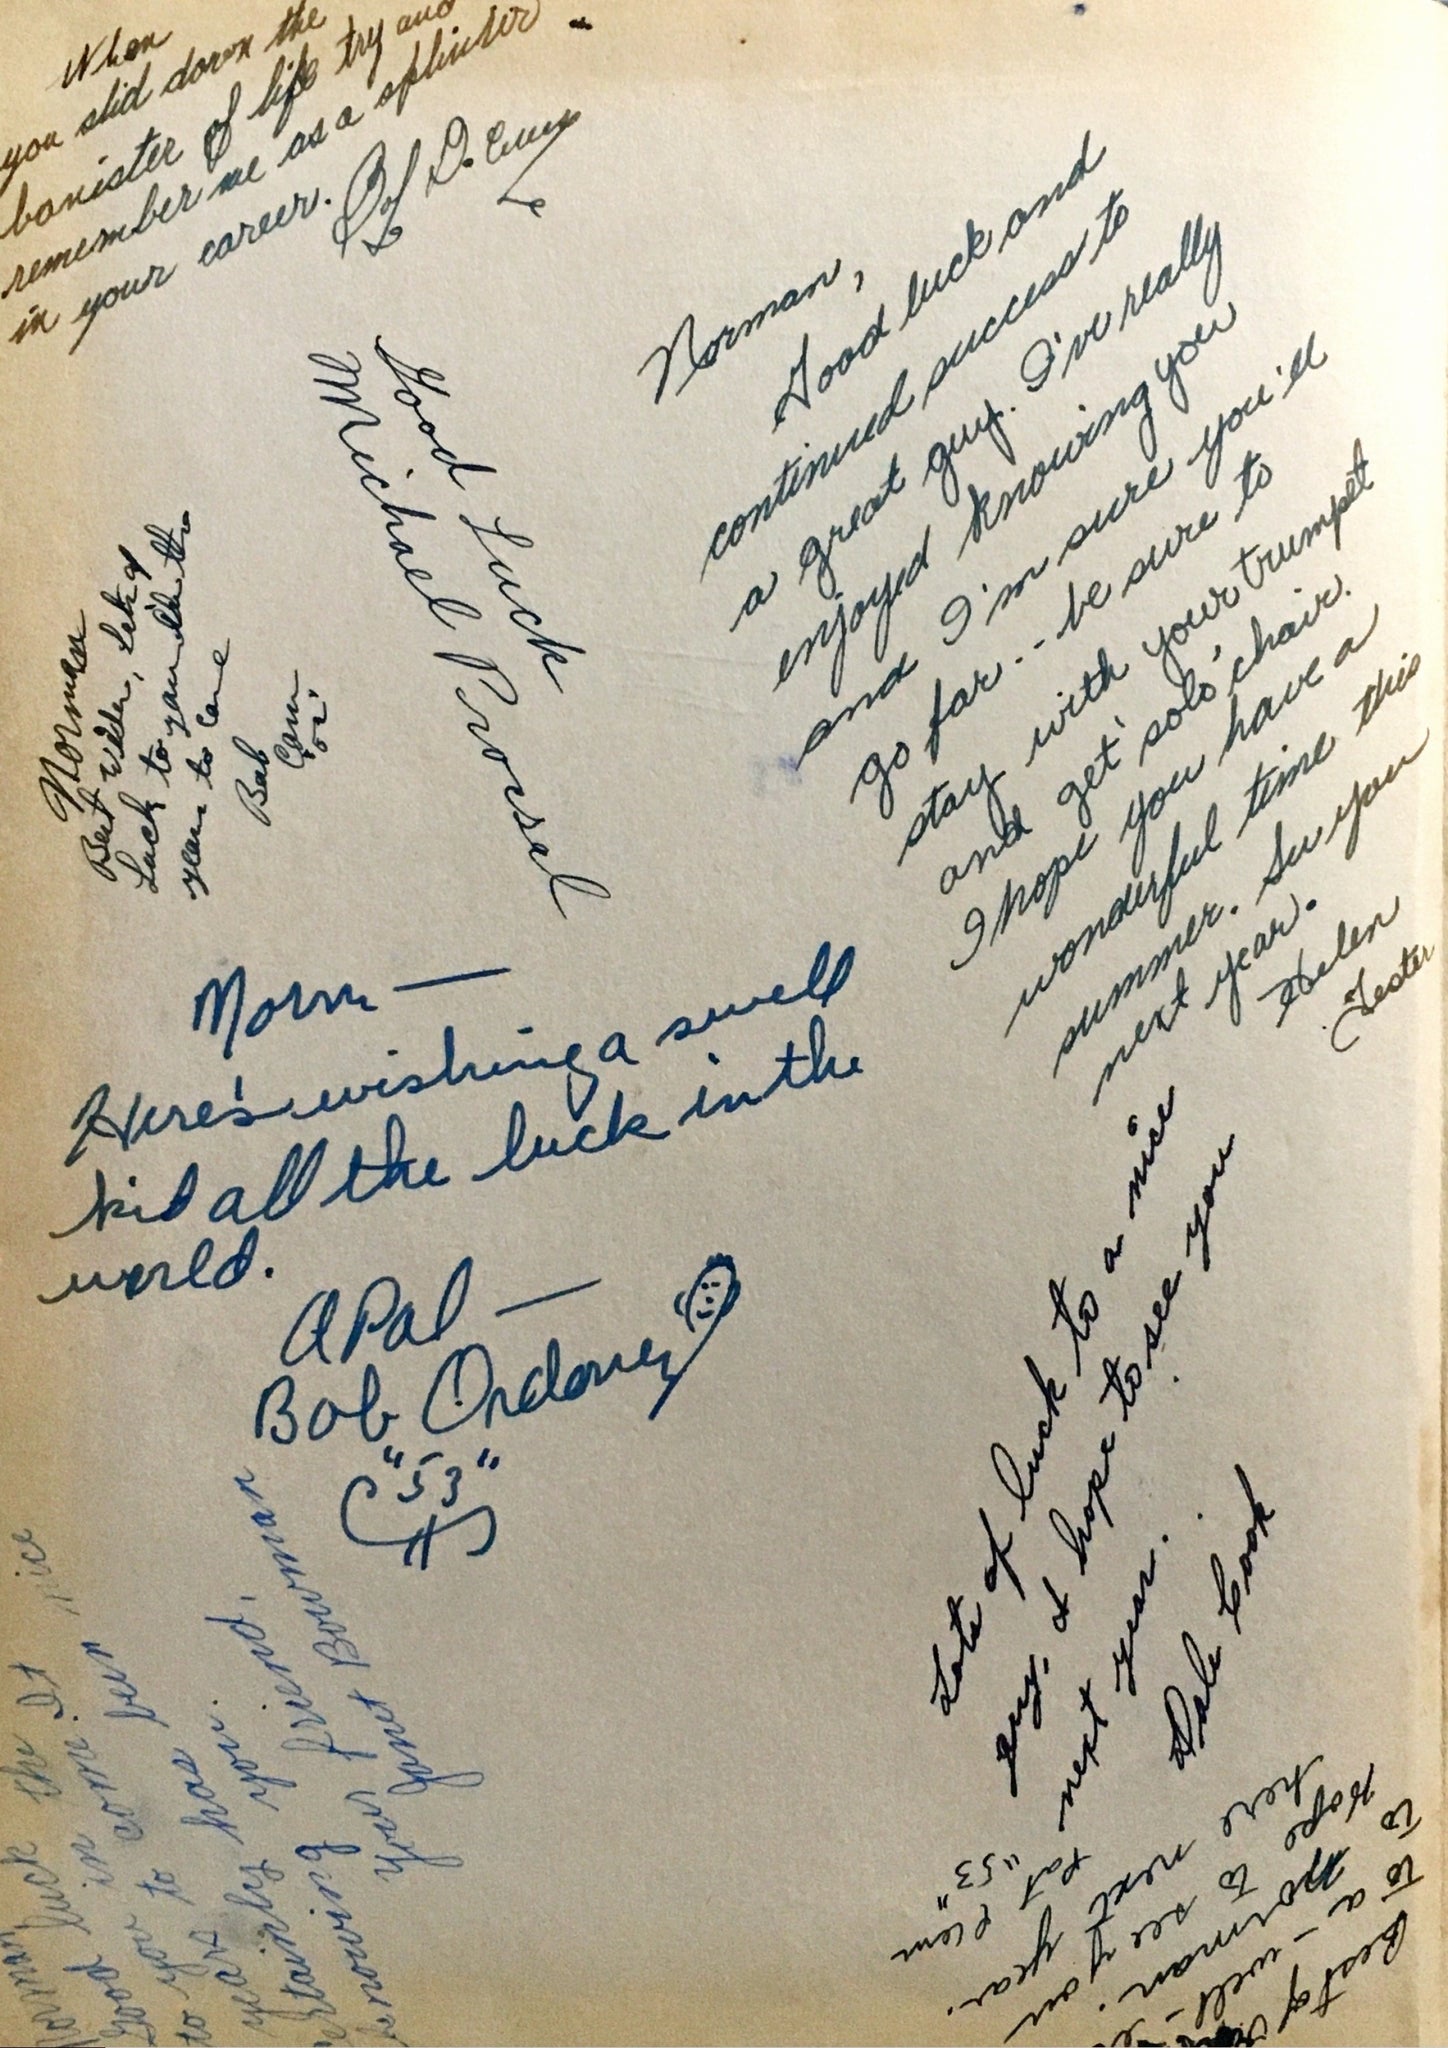 When
you slid down the
banister of life try and
remember me as a splinter
in your career.
Norman,
Good luck and
continued success to
a great guy. I've really
enjoyed knowing you
and I'm sure you'll
go far -- be sure to
stay with your trumpet
and get 'solo' chair.
I hope you have a
wonderful time this
summer. See you
next year.
Helen
Tester
Good Luck
Michael Prorsal
Norman
Best Wishes, Lots of
Luck to you in the
years to Come
Bob
Norm —
Here's wishing a swell
kid all the luck in the
world.
A Pal —
Bob Ordoney
"53"
Lots of luck to a nice
guy, & hope to see you
next year.
Dale Cook
Norman
Good luck to the
in come. It
to you has been nice
years
knowing you.
Your friend,
Janet Bowman
Best of
to a well
to Norman.
Hope to see you
here next year.
Pat
"53"